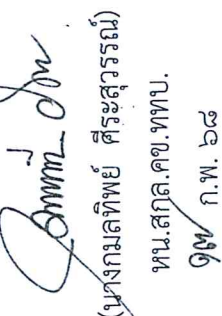 (นางกมลทิพย์ ศีระสุวรรณ์)
หน.สกล.คข.ททบ.
๑๗ ก.พ. ๖๘